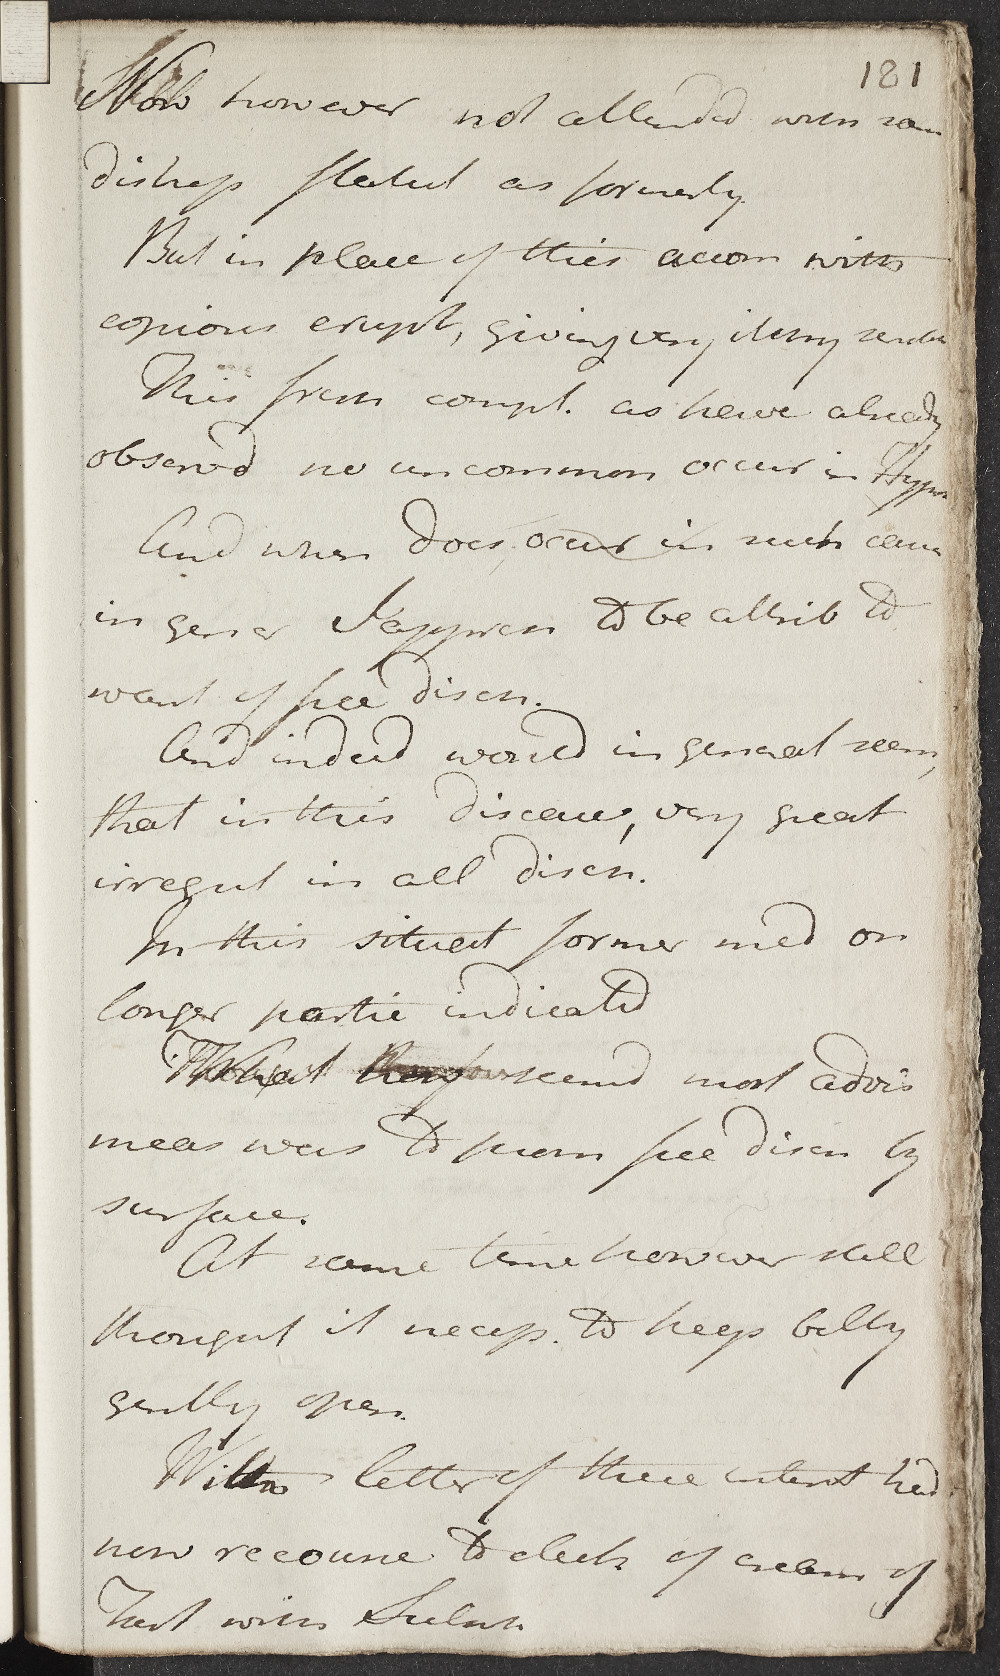 181
Now however not attended with sam
distress flatul as formerly.
But in place of this accom with
copious erupt, giving very itchy sensa
This from compl. as have already
observ'd no uncommon occur in Hypo
And when does occur in such cases
in gener I apprehen to be attrib to
want of free disch.
And indeed would in general seem,
that in this disease, very great
irregul in all disch.
In this situat former med on
longer partic indicated
What seemd most advis
meas was to prom free disch by
surface.
At same time however still
thought it necess. to keep belly
gently open.
With letter of these intent had
now recourse to elect of cream of
Tart with Sulph